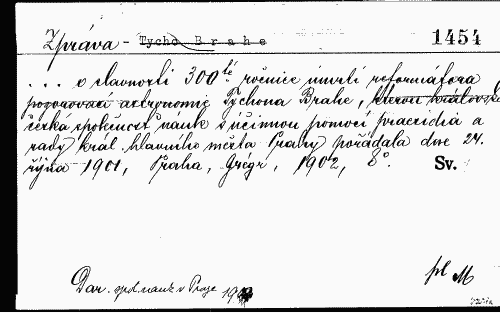 Zpráva - Tycho Brahe 1454
... o slavnosti 300té ročnice úmrtí reformátora
pozorovací astronomie Tychona Brahe, kterou královská
česká společnost náuk s účinnou pomocí praesidia a
rady král. hlavního města Prahy pořádala dne 24.
října 1901, Praha, Grégr, 1902, 8°. Sv.
pl M
Dar. spol. nauk v Praze 19